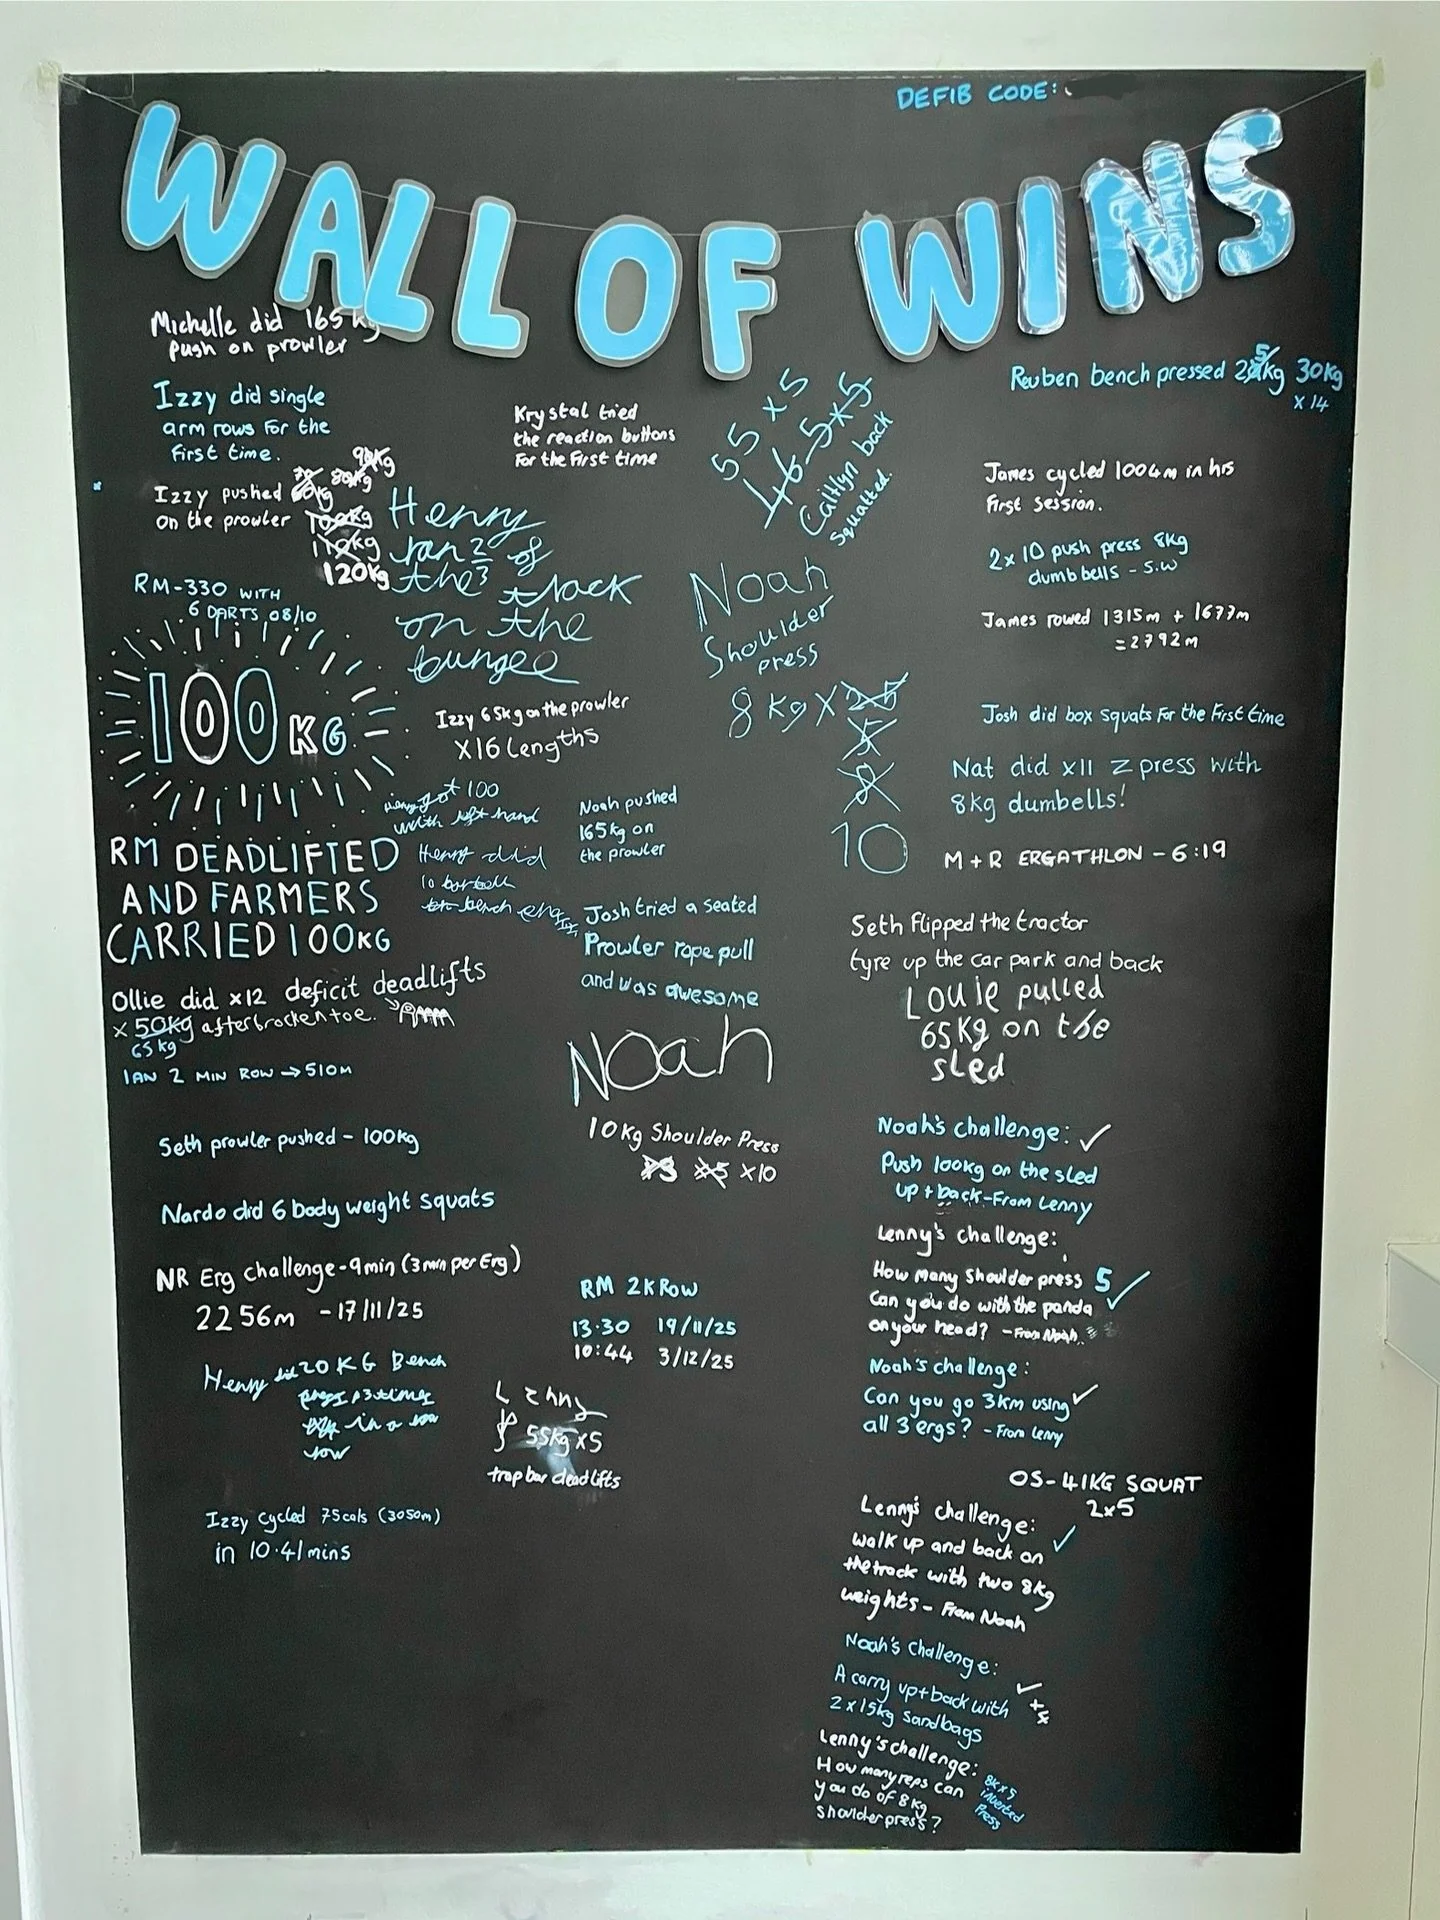 DEFIB CODE:
WALL OF WINS
Michelle did 165kg
push on prowler
Izzy did single
arm rows for the
first time.
Izzy pushed 60kg 70 80kg 90kg
on the prowler 100kg
110kg
120kg
RM-330 WITH
6 DARTS 08/10
100KG
RM DEADLIFTED
AND FARMERS
CARRIED 100KG
Ollie did x12 deficit deadlifts
x 50kg after brocken toe.
65kg
IAN 2 MIN ROW → 510M
Seth prowler pushed - 100kg
Nardo did 6 body weight squats
NR Erg challenge - 9min (3min per Erg)
2256m - 17/11/25
Henry did 20KG Bench
press 13 times
in a
row
Izzy cycled 75cals (3050m)
in 10.41mins
Krystal tried
the reaction buttons
for the first time
Henry
ran 2/3 of
the track
on the
bungee
Izzy 65kg on the prowler
x16 lengths
Henry got 100
with left hand
Henry did
10 barbell
bench
Noah pushed
165kg on
the prowler
Josh tried a seated
Prowler rope pull
and was awesome
Noah
10kg Shoulder Press
x3 x5 x10
RM 2K ROW
13.30 19/11/25
10:44 3/12/25
Lenny
55kg x5
trap bar deadlifts
55 x 5
46.5 x 5
Caitlyn back
squatted.
Noah
Shoulder
press
8kg x
10
Reuben bench pressed 25kg 30kg
x 14
James cycled 1004m in hrs
first session.
2 x 10 push press 8kg
dumbbells - S.W
James rowed 1315m + 1677m
= 2792m
Josh did box squats for the first time
Nat did x11 Z press with
8kg dumbells!
M + R ERGATHLON - 6:19
Seth flipped the tractor
tyre up the car park and back
Louie pulled
65kg on the
sled
Noah's challenge: ✓
Push 100kg on the sled
up + back - From Lenny
Lenny's challenge:
How many shoulder press 5 ✓
Can you do with the panda ✓
on your head? - From Noah
Noah's challenge:
Can you go 3km using ✓
all 3 ergs? - From Lenny
OS - 41KG SQUAT
2x5
Lenny's challenge: ✓
walk up and back on
the track with two 8kg
weights - From Noah
Noah's challenge:
A carry up + back with ✓ x4
2 x 15kg sandbags
Lenny's challenge:
How many reps can
you do of 8kg
shoulder press?
8k x 5
inverted
Press